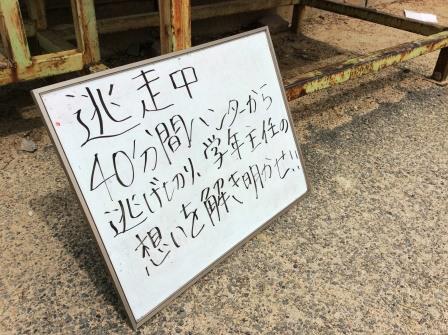 逃走中
40分間ハンターから
逃げきり、学年主任の
想いを解き明かせ!!